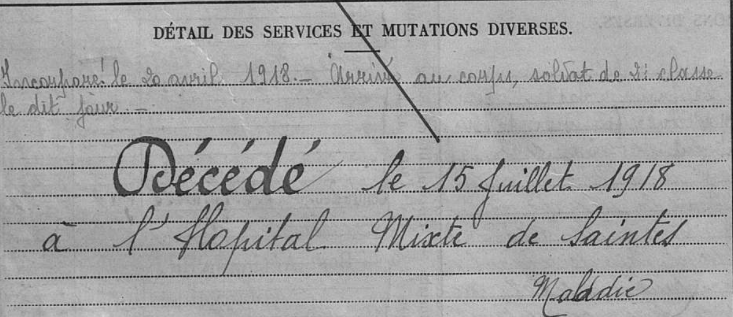 DÉTAIL DES SERVICES ET MUTATIONS DIVERSES.
Incorporé le 20 avril 1918. – Arrivé au corps, soldat de 2e classe
le dit jour. –
Décédé le 15 Juillet 1918
à l'Hopital Mixte de Saintes
Maladie